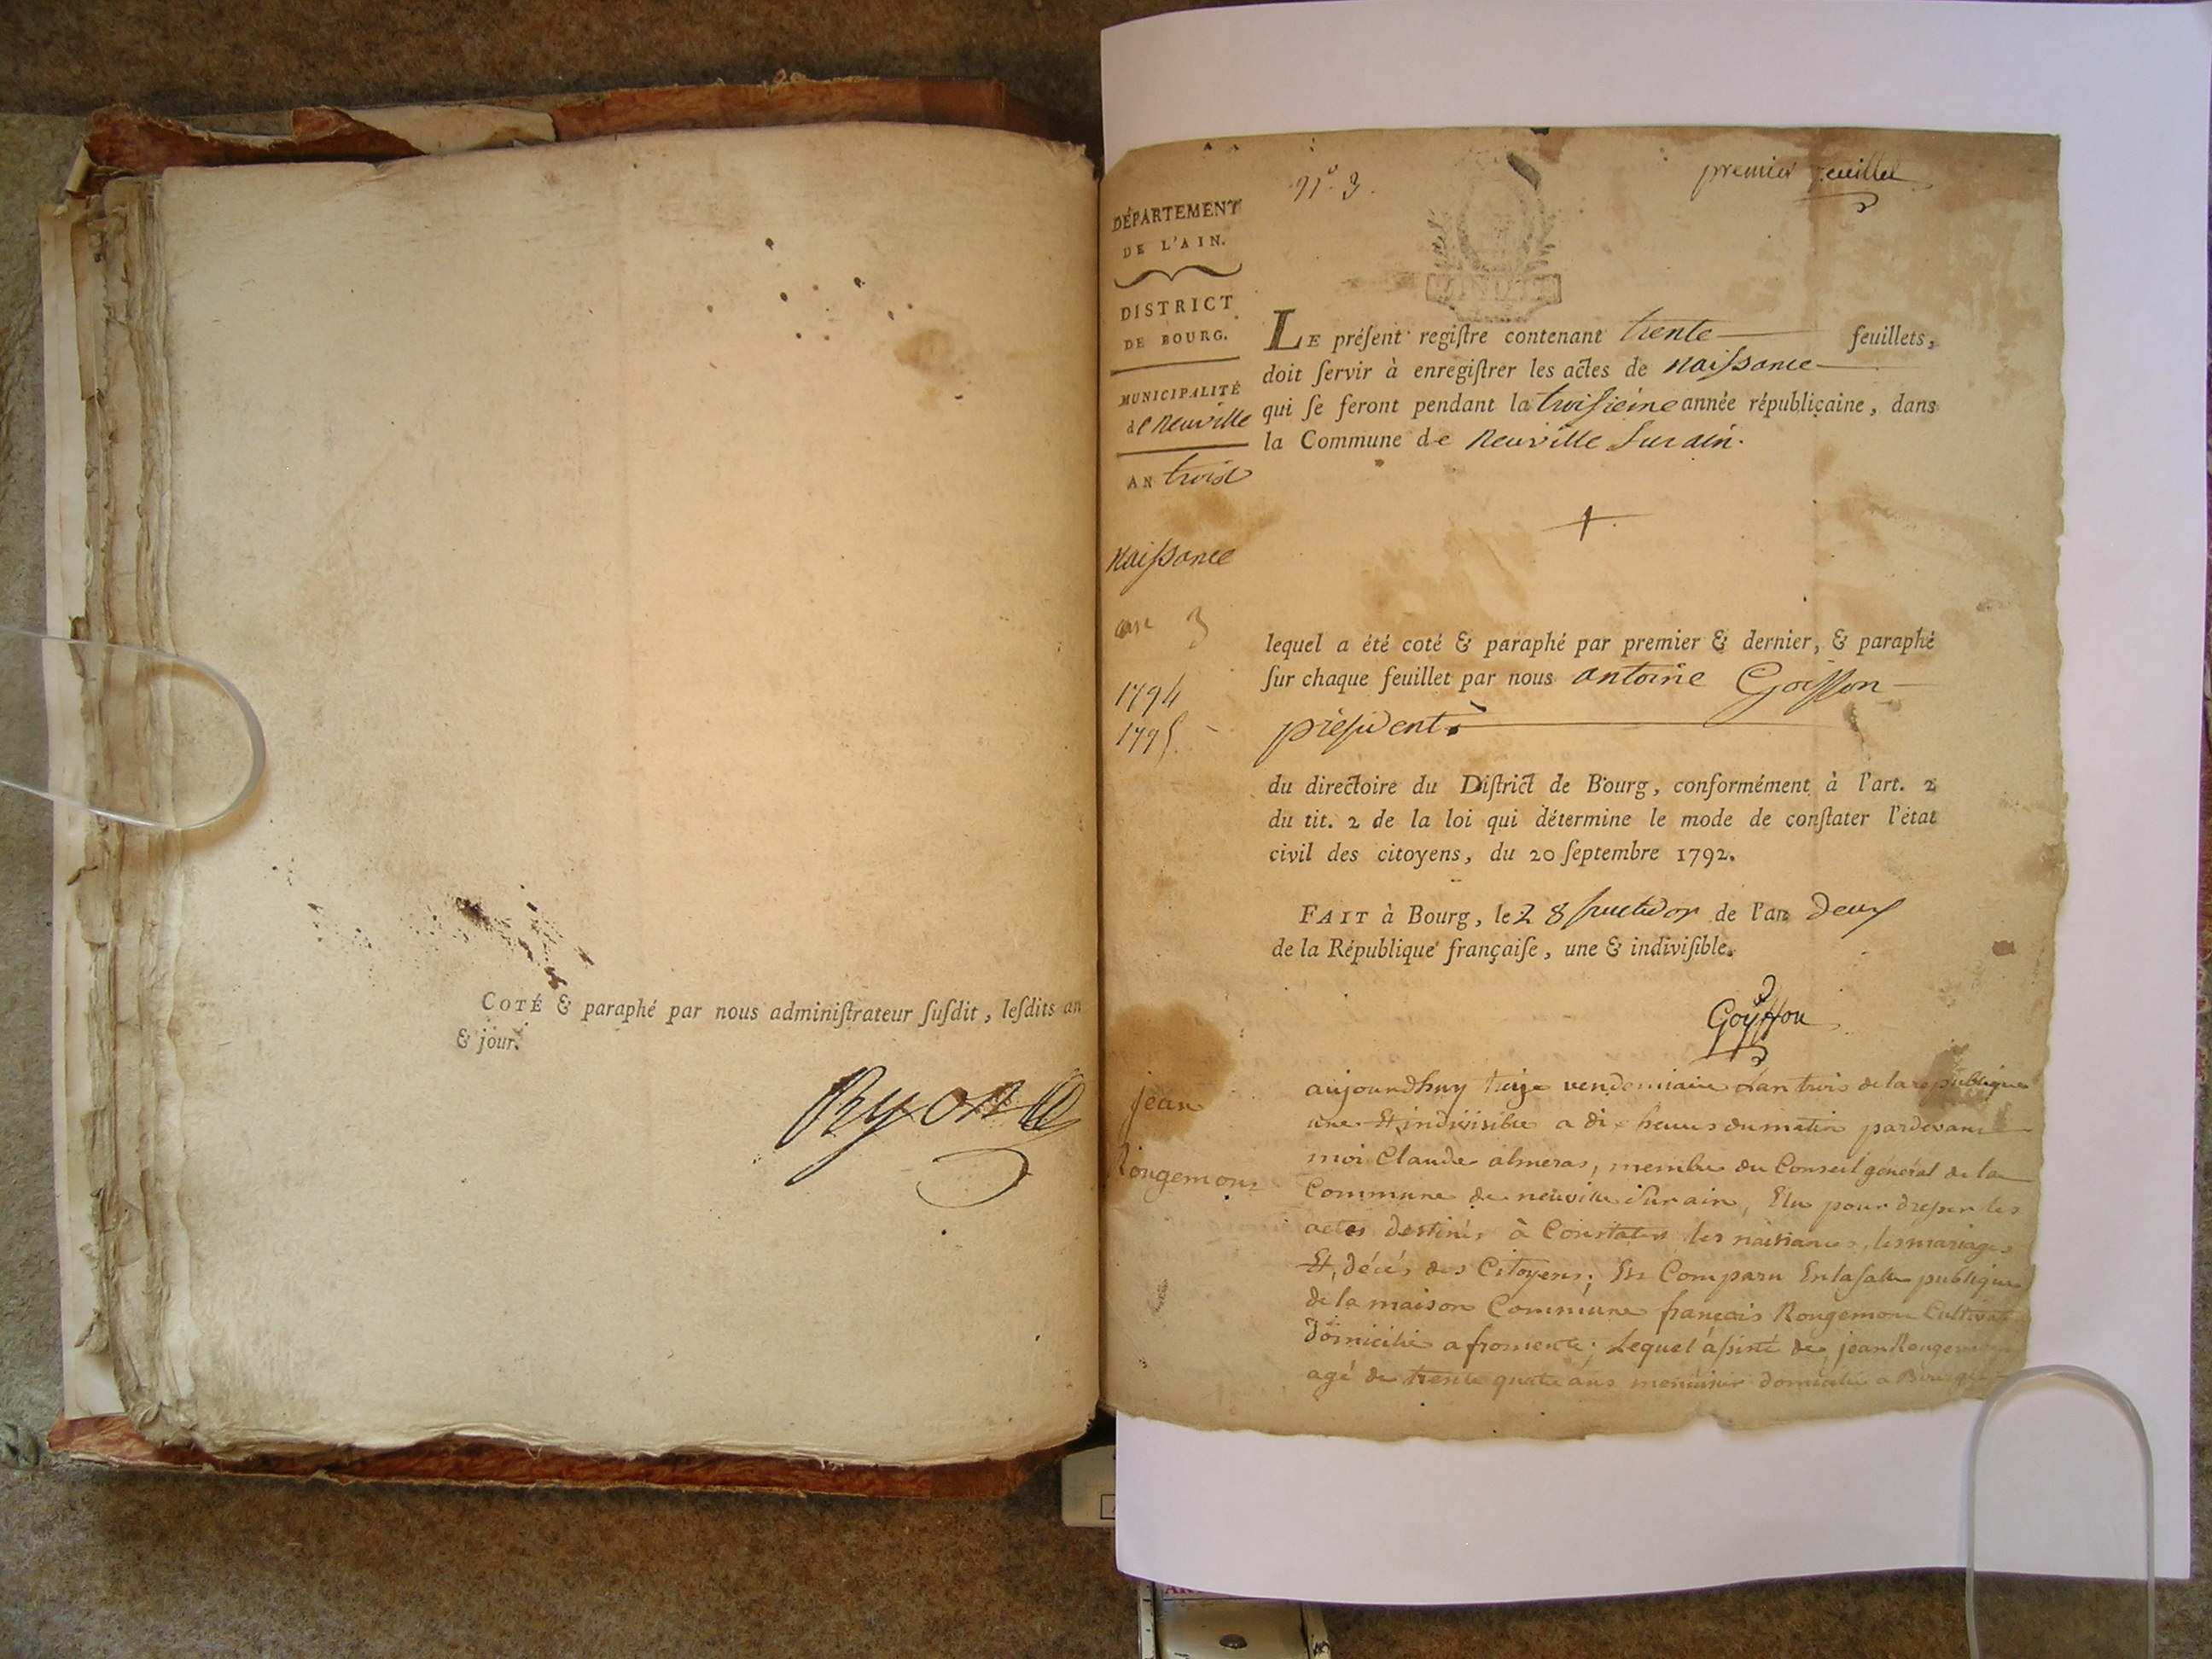 COTÉ & paraphé par nous adminiſtrateur ſuſdit, leſdits an
& jour.
N° 3.
premier feuillet
DÉPARTEMENT
DE L'AIN.
DISTRICT
DE BOURG.
MUNICIPALITÉ
de Neuville
AN trois
Naissance
an 3
1794
1795
LE préſent regiſtre contenant trente feuillets,
doit ſervir à enregiſtrer les actes de Naissance
qui ſe feront pendant la troisieme année républicaine, dans
la Commune de Neuville Sur ain.
lequel a été coté & paraphé par premier & dernier, & paraphé
ſur chaque feuillet par nous antoine Goiffon
président
du directoire du Diſtrict de Bourg, conformément à l'art. 2
du tit. 2 de la loi qui détermine le mode de conſtater l'état
civil des citoyens, du 20 ſeptembre 1792.
FAIT à Bourg, le 28 fructidor de l'an deux
de la République françaiſe, une & indiviſible.
Goyffon
jean
Rougemont
aujourdhuy treize vendemiaire Lan trois de la republique
une Et indivisible a dix heures du matin pardevant
moi Claude almeras, membre du Conseil général de la
Commune de neuville Sur ain, Elu pour dresser les
actes destinés à Constater les naissances, les mariages
Et décés des Citoyens; Est Comparu En la salle publique
de la maison Commune françois Rougemont Cultivateur
domicilié a fromente; Lequel assisté de jean Rougemont
agé de trente quatre ans menuisier domicilié a